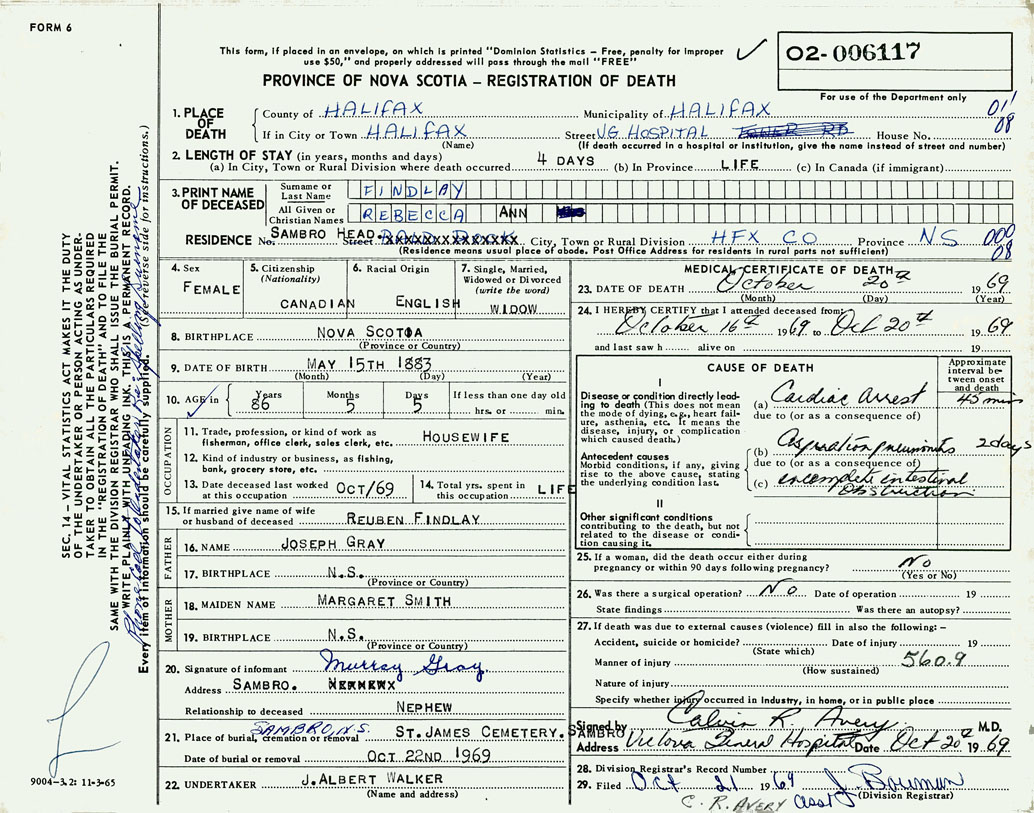 FORM 6
This form, if placed in an envelope, on which is printed "Dominion Statistics – Free, penalty for improper
use $50," and properly addressed will pass through the mail "FREE"
O2-006117
For use of the Department only
PROVINCE OF NOVA SCOTIA – REGISTRATION OF DEATH
1. PLACE OF DEATH
County of HALIFAX Municipality of HALIFAX 011
If in City or Town HALIFAX Street VG HOSPITAL House No. 08
(Name) (If death occurred in a hospital or institution, give the name instead of street and number)
2. LENGTH OF STAY (in years, months and days)
(a) In City, Town or Rural Division where death occurred 4 DAYS (b) In Province LIFE (c) In Canada (if immigrant)
3. PRINT NAME OF DECEASED
Surname or Last Name FINDLAY
All Given or Christian Names REBECCA ANN
RESIDENCE No. SAMBRO HEAD. Street XXXXXXXXXXXXXXX City, Town or Rural Division HFX CO Province NS 000
(Residence means usual place of abode. Post Office Address for residents in rural parts not sufficient) 08
4. Sex FEMALE
5. Citizenship (Nationality) CANADIAN
6. Racial Origin ENGLISH
7. Single, Married, Widowed or Divorced (write the word) WIDOW
8. BIRTHPLACE NOVA SCOTIA
(Province or Country)
9. DATE OF BIRTH MAY 15TH 1883
(Month) (Day) (Year)
10. AGE in Years 86 Months 5 Days 5 If less than one day old hrs. or min.
OCCUPATION
11. Trade, profession, or kind of work as HOUSEWIFE
fisherman, office clerk, sales clerk, etc.
12. Kind of industry or business, as fishing,
bank, grocery store, etc.
13. Date deceased last worked at this occupation OCT/69
14. Total yrs. spent in this occupation LIFE
15. If married give name of wife
or husband of deceased REUBEN FINDLAY
FATHER
16. NAME JOSEPH GRAY
17. BIRTHPLACE N.S.
(Province or Country)
MOTHER
18. MAIDEN NAME MARGARET SMITH
19. BIRTHPLACE N.S.
(Province or Country)
20. Signature of informant Murray Gray
Address SAMBRO.
Relationship to deceased NEPHEW
SAMBRO, N.S.
21. Place of burial, cremation or removal ST. JAMES CEMETERY. SAMBRO
Date of burial or removal OCT 22ND 1969
22. UNDERTAKER J.ALBERT WALKER
(Name and address)
MEDICAL CERTIFICATE OF DEATH
23. DATE OF DEATH October 20th 1969
(Month) (Day) (Year)
24. I HEREBY CERTIFY that I attended deceased from:
October 16th 1969 to Oct 20th 1969
and last saw h alive on 19
CAUSE OF DEATH
Approximate interval between onset and death
I
Disease or condition directly leading to death (This does not mean the mode of dying, e.g., heart failure, asthenia, etc. It means the disease, injury, or complication which caused death.)
(a) Cardiac Arrest 45 mins
due to (or as a consequence of)
Antecedent causes
Morbid conditions, if any, giving rise to the above cause, stating the underlying condition last.
(b) Aspiration pneumonitis 2 days
due to (or as a consequence of)
(c) incomplete intestinal obstruction
II
Other significant conditions
contributing to the death, but not related to the disease or condition causing it.
25. If a woman, did the death occur either during
pregnancy or within 90 days following pregnancy? No
(Yes or No)
26. Was there a surgical operation? No Date of operation 19
State findings Was there an autopsy?
27. If death was due to external causes (violence) fill in also the following: –
Accident, suicide or homicide? Date of injury 19
(State which)
Manner of injury 560.9
(How sustained)
Nature of injury
Specify whether injury occurred in industry, in home, or in public place
Signed by Calvin R. Avery M.D.
Address Victoria General Hospital Date Oct 20th 1969
28. Division Registrar's Record Number
29. Filed Oct 21 1969 J. Bowman
(Division Registrar)
C. R. AVERY Asst
SEC. 14 – VITAL STATISTICS ACT MAKES IT THE DUTY
OF THE UNDERTAKER OR PERSON ACTING AS UNDER-
TAKER TO OBTAIN ALL THE PARTICULARS REQUIRED
IN THE "REGISTRATION OF DEATH" AND TO FILE THE
SAME WITH THE DIVISION REGISTRAR WHO SHALL ISSUE THE BURIAL PERMIT.
WRITE PLAINLY WITH UNFADING INK. THIS IS A PERMANENT RECORD.
Every item of information should be carefully supplied. (See reverse side for instructions.)
9004-3.2: 11-3-65